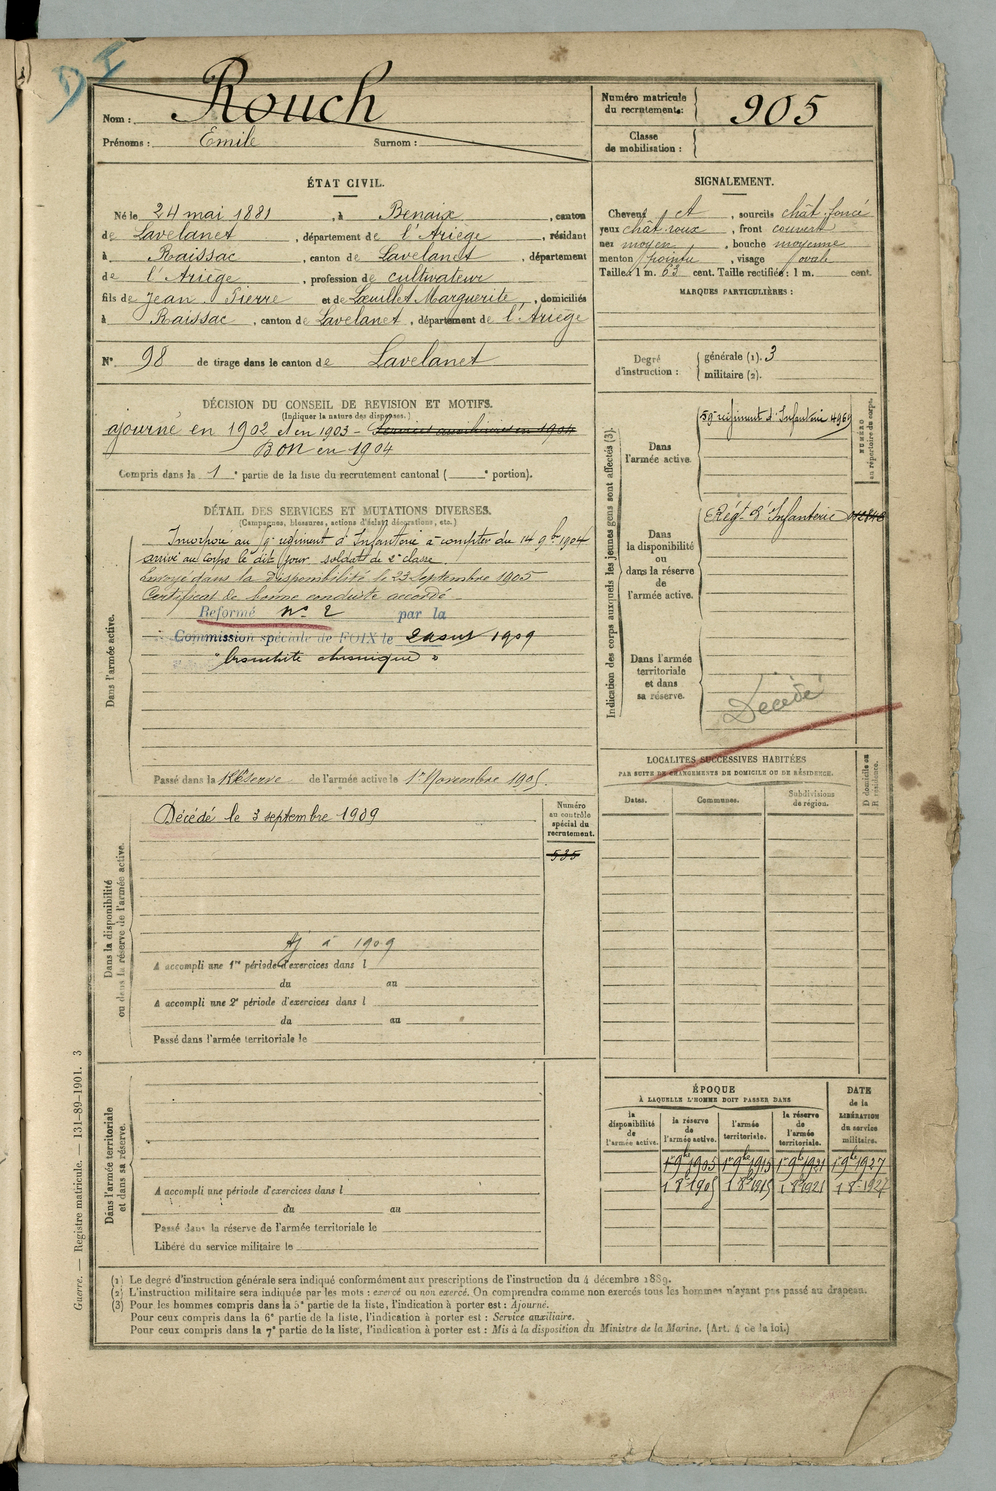 D I
Nom : Rouch
Prénoms : Emile Surnom :
Numéro matricule du recrutement : 905
Classe de mobilisation :
ÉTAT CIVIL.
Né le 24 mai 1881, à Benaix, canton
de Lavelanet, département de l'Ariège, résidant
à Raissac, canton de Lavelanet, département
de l'Ariège, profession de cultivateur
fils de Jean Pierre et de Lœuillet Marguerite, domiciliés
à Raissac, canton de Lavelanet, département de l'Ariège
N° 98 de tirage dans le canton de Lavelanet
SIGNALEMENT.
Cheveux et, sourcils chât. foncé
yeux chât. roux, front couvert
nez moyen, bouche moyenne
menton pointu, visage ovale
Taille : 1 m. 63 cent. Taille rectifiée : 1 m. cent.
MARQUES PARTICULIÈRES :
Degré d'instruction : générale (1). 3
militaire (2).
DÉCISION DU CONSEIL DE REVISION ET MOTIFS.
(Indiquer la nature des dispenses.)
ajourné en 1902 et en 1903 - Services auxiliaires en 1904
BON en 1904
Compris dans la 1e partie de la liste du recrutement cantonal ( e portion).
DÉTAIL DES SERVICES ET MUTATIONS DIVERSES.
(Campagnes, blessures, actions d'éclat, décorations, etc.)
Dans l'armée active.
Incorporé au 59e régiment d'Infanterie à compter du 14 9bre 1904
arrivé au corps le dit jour soldat de 2e classe
envoyé dans la Disponibilité le 23 Septembre 1905
Certificat de bonne conduite accordé
Réformé n° 2 par la
Commission spéciale de FOIX le 2 aout 1909
"bronchite chronique"
Passé dans la Réserve de l'armée active le 1er Novembre 1905.
Indication des corps auxquels les jeunes gens sont affectés (3).
NUMÉRO au répertoire du corps.
Dans l'armée active.
59e régiment d'Infanterie 4964
Dans la disponibilité ou dans la réserve de l'armée active.
Régt d'Infanterie
Dans l'armée territoriale et dans sa réserve.
Décédé
LOCALITÉS SUCCESSIVES HABITÉES
PAR SUITE DE CHANGEMENTS DE DOMICILE OU DE RÉSIDENCE.
Dates. Communes. Subdivisions de région. D domicile ou R résidence.
Dans la disponibilité ou dans la réserve de l'armée active.
Décédé le 3 septembre 1909
Numéro au contrôle spécial du recrutement.
535
Aj à 1909
A accompli une 1re période d'exercices dans l
du au
A accompli une 2e période d'exercices dans l
du au
Passé dans l'armée territoriale le
Dans l'armée territoriale et dans sa réserve.
A accompli une période d'exercices dans l
du au
Passé dans la réserve de l'armée territoriale le
Libéré du service militaire le
ÉPOQUE
À LAQUELLE L'HOMME DOIT PASSER DANS
la disponibilité de l'armée active. la réserve de l'armée active. l'armée territoriale. la réserve de l'armée territoriale. DATE de la LIBÉRATION du service militaire.
1er 9bre 1905 1er 9bre 1915 1er 9bre 1921 1er 9bre 1927
1 8bre 1905 1 8bre 1915 1 8bre 1921 1 8bre 1927
(1) Le degré d'instruction générale sera indiqué conformément aux prescriptions de l'instruction du 4 décembre 1889.
(2) L'instruction militaire sera indiquée par les mots : exercé ou non exercé. On comprendra comme non exercés tous les hommes n'ayant pas passé au drapeau.
(3) Pour les hommes compris dans la 5e partie de la liste, l'indication à porter est : Ajourné.
Pour ceux compris dans la 6e partie de la liste, l'indication à porter est : Service auxiliaire.
Pour ceux compris dans la 7e partie de la liste, l'indication à porter est : Mis à la disposition du Ministre de la Marine. (Art. 4 de la loi.)
Guerre. — Registre matricule. — 131-89-1901. 3